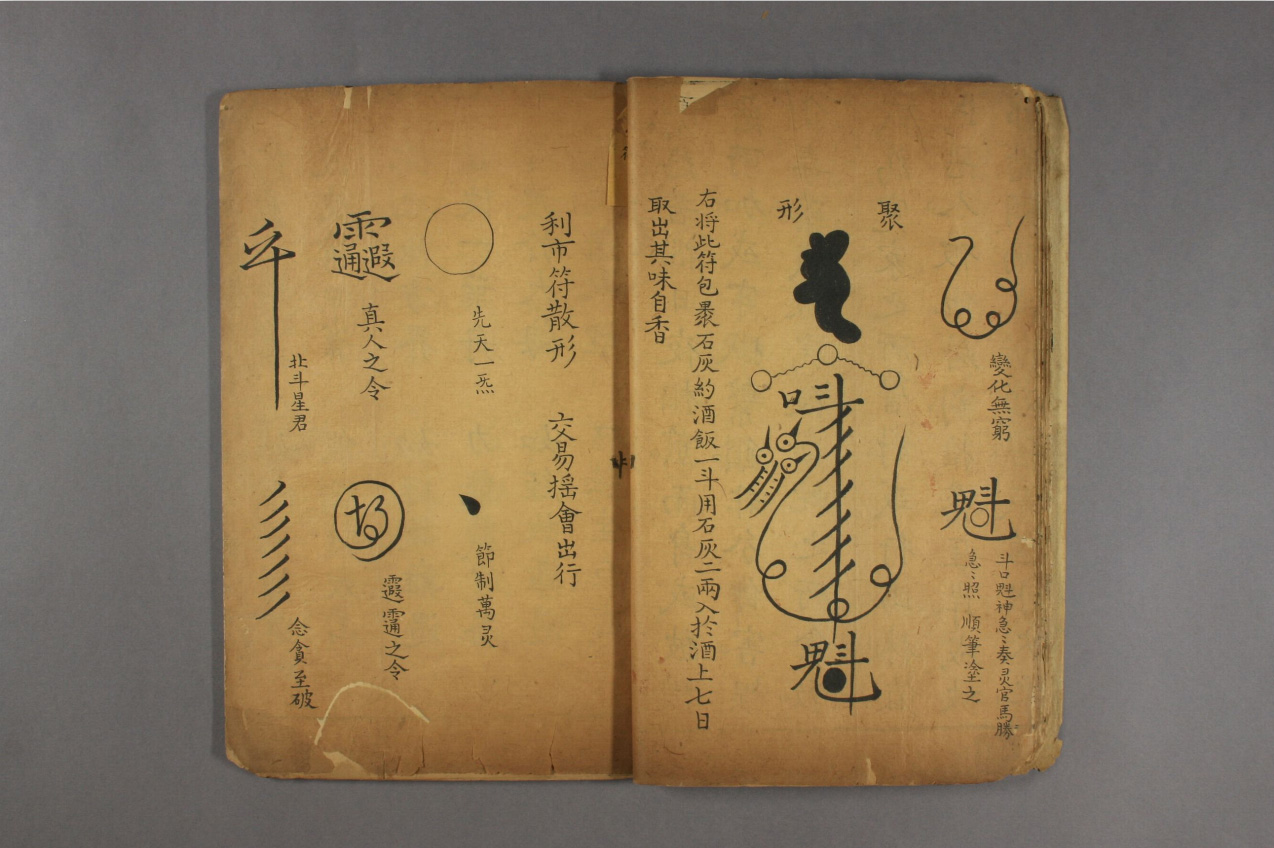 變化無窮
魁
斗口魁神急〻奏灵官馬勝
急〻照 順筆塗之
聚
形
魁
右将此符包暴石灰約酒飯一斗用石灰二兩入於酒上七日
取出其味自香
利市符散形 交易揺會出行
先天一炁
節制萬灵
真人之令
霞霻之令
北斗星君
念貪至破